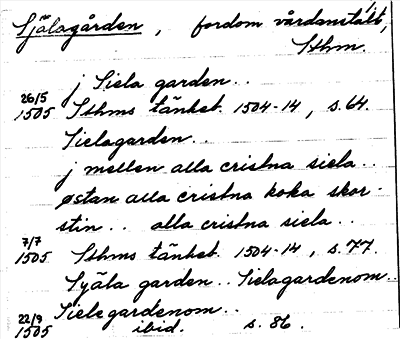 Själagården, fordom vårdanstalt,
Sthm.
j Siela garden..
26/5 1505 Sthms tänkeb. 1504-14, s. 64.
Sielagarden..
j mellen alla cristna siela..
østan alla cristna koka skor-
stin.. alla cristna siela..
7/7 1505 Sthms tänkeb. 1504-14, s. 77.
Syäla garden.. Sielagardenom..
Sielegardenom..
22/9 1505 ibid. s. 86.